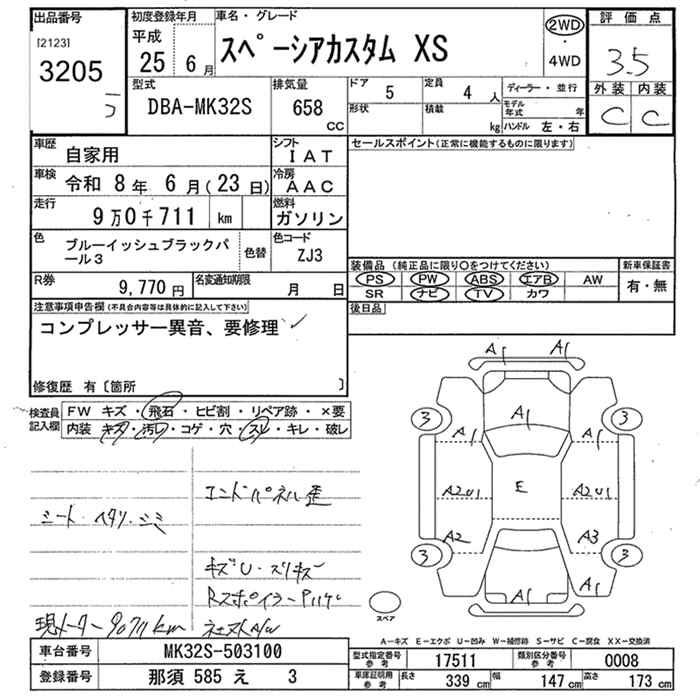 出品番号
[2123]
3205
初度登録年月
平成
25 6月
車名・グレード
スペーシアカスタム XS
2WD
・
4WD
評価点
3.5
外装 内装
C C
型式
DBA-MK32S
排気量
658
CC
ドア
5
定員
4 人
ディーラー・並行
形状
積載
kg
モデル年式 年
ハンドル 左・右
車歴
自家用
シフト
IAT
セールスポイント(正常に機能するものに限ります)
車検
令和 8年 6月(23日)
冷房
AAC
走行
9万0千711 km
燃料
ガソリン
色
ブルーイッシュブラックパール3
色替
色コード
ZJ3
装備品 (純正品に限り○をつけてください)
新車保証書
PS PW ABS エアB AW
SR ナビ TV カワ
有・無
R券
9,770円
名変通知期限
月 日
後日品
注意事項申告欄(不具合内容等は具体的に記入して下さい)
コンプレッサー異音、要修理
修復歴 有〔箇所 〕
検査員記入欄
FW キズ・飛石・ヒビ割・リペア跡・×要
内装 キズ・汚レ・コゲ・穴・スレ・キレ・破レ
シート ヘタリ・シミ
エンドパネル歪
キズU・スリキズ
現メーター90711km
A1 A1
3 A1 3
A1 A1
A2U1 E A2U1
A2 A3
3 3
A1 A1
スペア
A－キズ E－エクボ U－凹み W－補修跡 S－サビ C－腐食 XX－交換済
車台番号
MK32S-503100
登録番号
那須 585 え 3
型式指定番号
参考
17511
類別区分番号
参考
0008
車庫証明用
参考
長さ
339 cm
幅
147 cm
高さ
173 cm